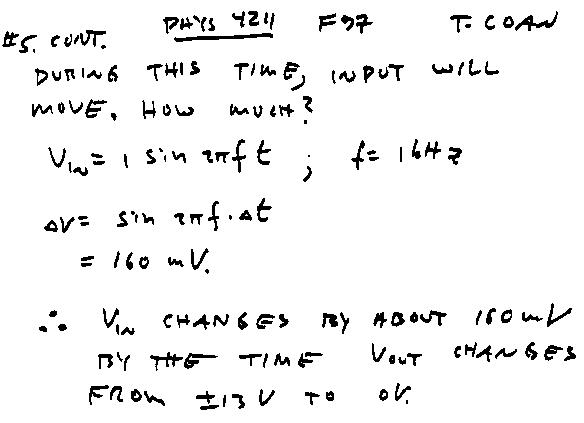 PHYS 4211 F97 T. COAN
#5. CONT.
DURING THIS TIME, INPUT WILL
MOVE. HOW MUCH?
V_IN = 1 sin 2πft ; f= 1 kHz
ΔV= sin 2πf·Δt
= 160 mV.
∴ V_IN CHANGES BY ABOUT 160 mV
BY THE TIME V_OUT CHANGES
FROM ±13 V TO 0V.